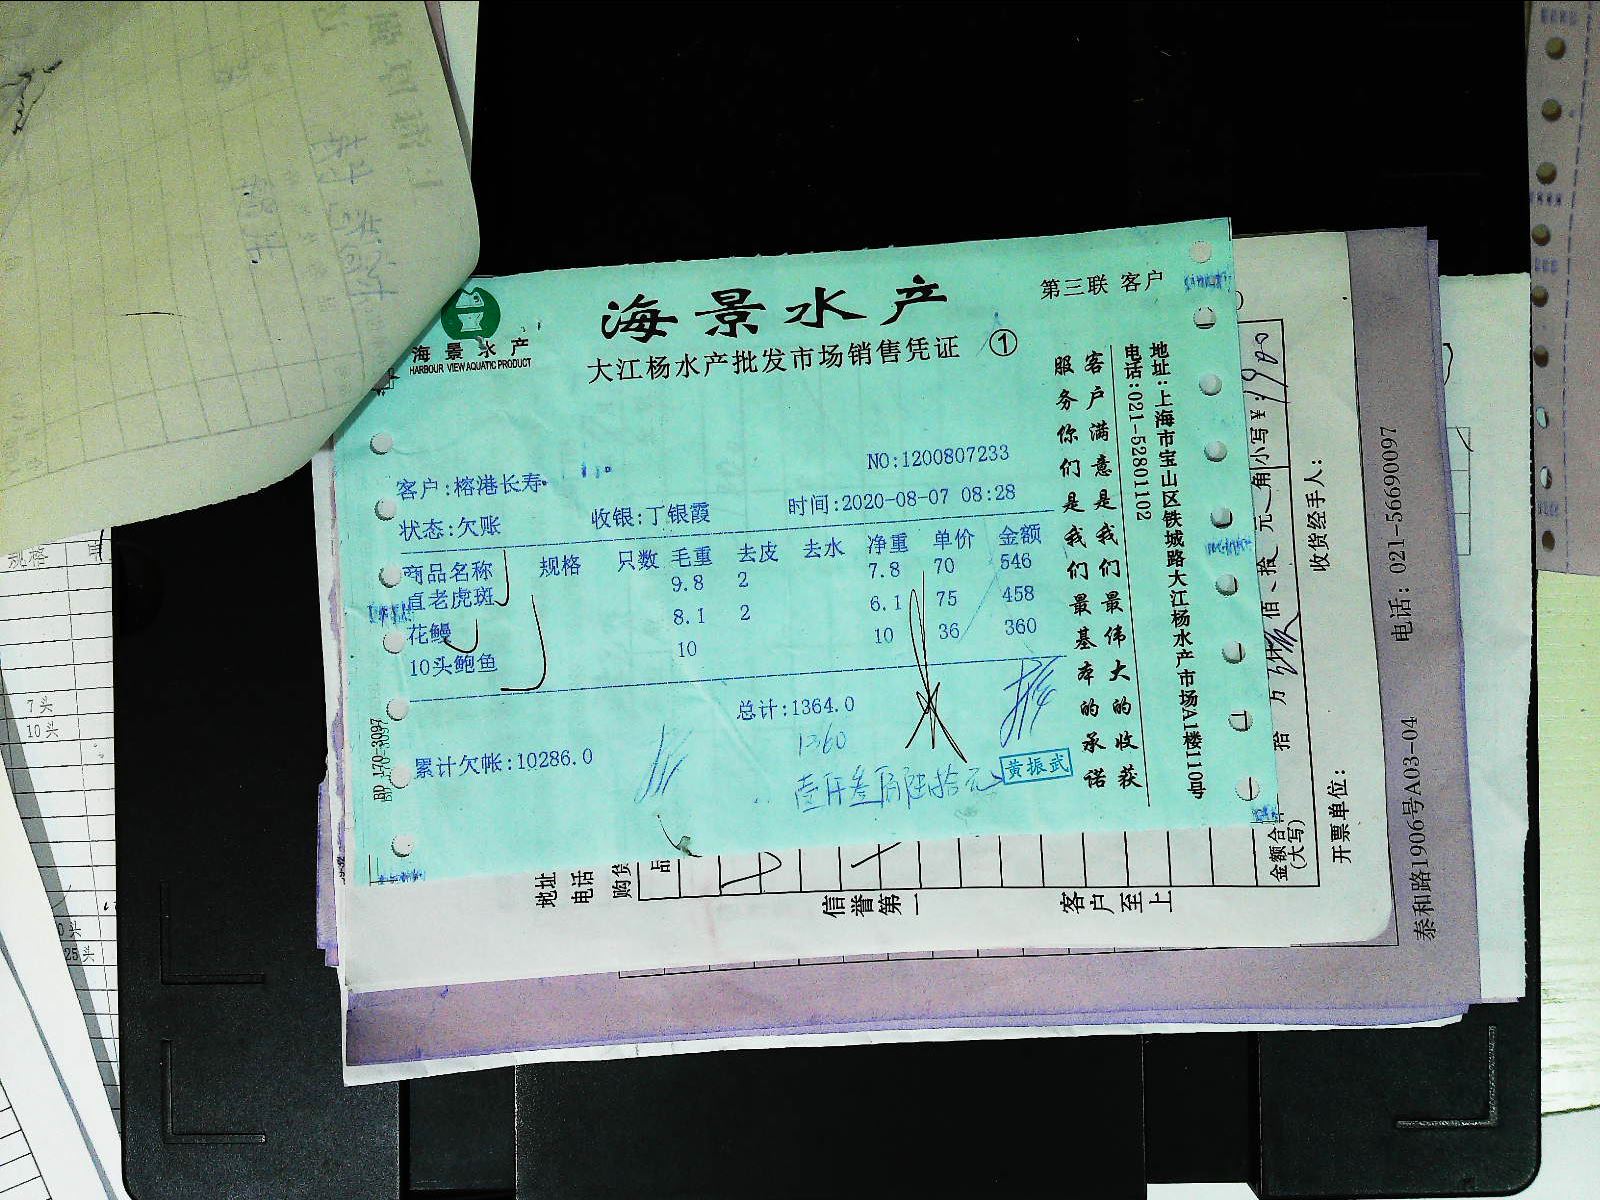 海景水产
HARBOUR VIEW AQUATIC PRODUCT
海景水产
大江杨水产批发市场销售凭证 ①
第三联 客户
NO:1200807233
客户:榕港长寿
状态:欠账 收银:丁银霞 时间:2020-08-07 08:28
商品名称 规格 只数 毛重 去皮 去水 净重 单价 金额
直老虎斑 9.8 2 7.8 70 546
花鳗 8.1 2 6.1 75 458
10头鲍鱼 10 10 36 360
总计:1364.0
1360
累计欠帐:10286.0
壹仟叁佰陆拾元
黄振武
客户满意是我们最伟大的收获
服务你们是我们最基本的承诺
地址:上海市宝山区铁城路大江杨水产市场A1楼1110号
电话:021-52801102
地址
电话
购货
品
信誉第一
客户至上
金额合
(大写)
拾 万 佰 拾 元 角
小写¥:1900
开票单位:
收货经手人:
泰和路1906号A03-04 电话: 021-56690097
规格
7头
10头
25头